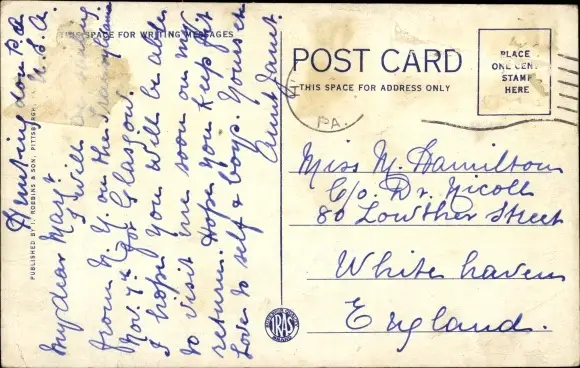 THIS SPACE FOR WRITING MESSAGES
Huntingdon Pa
U.S.A.
My dear May,
I will be
from N. Y. on the Transylvania
Nov. 7th for Glasgow.
I hope you will be able
to visit me soon on my
return. Hope you keep fit
Love to self & boys. Yours etc
Aunt Janet.
PUBLISHED BY I. ROBBINS & SON, PITTSBURGH, PA.
POST CARD
THIS SPACE FOR ADDRESS ONLY
PLACE
ONE CENT
STAMP
HERE
PA.
Miss M. Hamilton
C/o. Dr. Nicoll
80 Lowther Street
Whitehaven
England.
IRAS